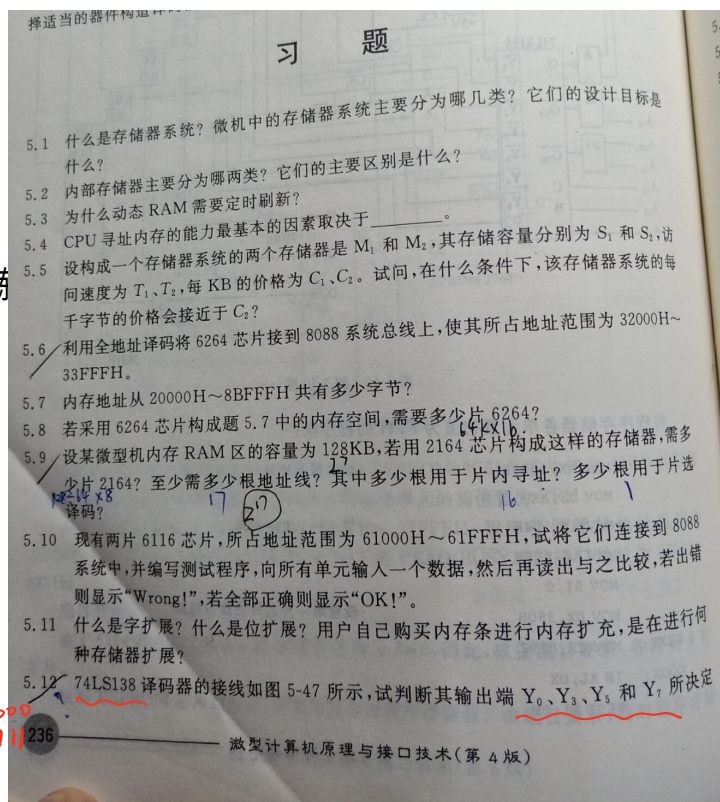 择适当的器件构造译
习 题
5.1 什么是存储器系统？微机中的存储器系统主要分为哪几类？它们的设计目标是
什么？
5.2 内部存储器主要分为哪两类？它们的主要区别是什么？
5.3 为什么动态 RAM 需要定时刷新？
5.4 CPU 寻址内存的能力最基本的因素取决于________。
5.5 设构成一个存储器系统的两个存储器是 M₁ 和 M₂，其存储容量分别为 S₁ 和 S₂，访
问速度为 T₁、T₂，每 KB 的价格为 C₁、C₂。试问，在什么条件下，该存储器系统的每
千字节的价格会接近于 C₂？
5.6 利用全地址译码将 6264 芯片接到 8088 系统总线上，使其所占地址范围为 32000H～
33FFFH。
5.7 内存地址从 20000H～8BFFFH 共有多少字节？
5.8 若采用 6264 芯片构成题 5.7 中的内存空间，需要多少片 6264？
64K×1b
5.9 设某微型机内存 RAM 区的容量为 128KB，若用 2164 芯片构成这样的存储器，需多
少片 2164？至少需多少根地址线？其中多少根用于片内寻址？多少根用于片选
17 2¹⁷ 16 1
译码？
5.10 现有两片 6116 芯片，所占地址范围为 61000H～61FFFH，试将它们连接到 8088
系统中，并编写测试程序，向所有单元输入一个数据，然后再读出与之比较，若出错
则显示“Wrong!”，若全部正确则显示“OK!”。
5.11 什么是字扩展？什么是位扩展？用户自己购买内存条进行内存扩充，是在进行何
种存储器扩展？
5.12 74LS138 译码器的接线如图 5-47 所示，试判断其输出端 Y₀、Y₃、Y₅ 和 Y₇ 所决定
236 微型计算机原理与接口技术(第 4 版)